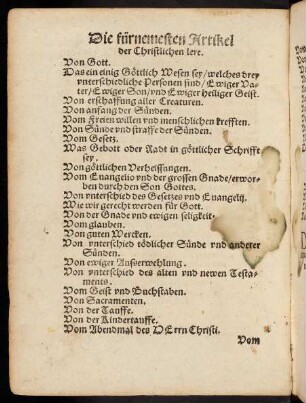 Die fürnemesten Artikel
der Christlichen lere.
Von Gott.
Das ein einig Göttlich Wesen sey/welches drey
vnterschiedliche Personen sind/Ewiger Va-
ter/Ewiger Son/vnd Ewiger heiliger Geist.
Von erschaffung aller Creaturen.
Von anfang der Sünden.
Vom Freien willen vnd menschlichen krefften.
Von Sünde vnd straffe der Sünden.
Vom Gesetz.
Was Gebott oder Radt in göttlicher Schrifft
sey.
Von göttlichen Verheissungen.
Vom Euangelio vnd der grossen Gnade/erwor-
ben durch den Son Gottes.
Von vnterschied des Gesetzes vnd Euangelij.
Wie wir gerecht werden für Gott.
Von der Gnade vnd ewigen seligkeit.
Vom glauben.
Von guten Wercken.
Von vnterschied tödlicher Sünde vnd anderer
Sünden.
Von ewiger Ausserwehlung.
Von vnterschied des alten vnd newen Testa-
ments.
Vom Geist vnd Buchstaben.
Von Sacramenten.
Von der Tauffe.
Von der Kindertauffe.
Vom Abendmal des HErrn Christi.
Vom